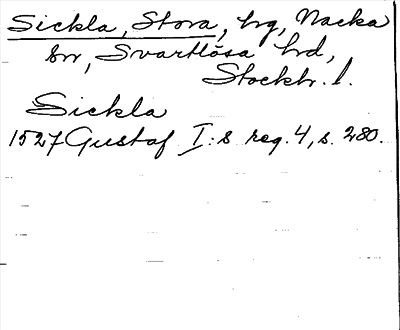 Sickla, Stora, hg, Nacka
sn, Svartlösa hd,
Stockh. l.
Sickla
1527 Gustaf I:s reg. 4, s. 280.